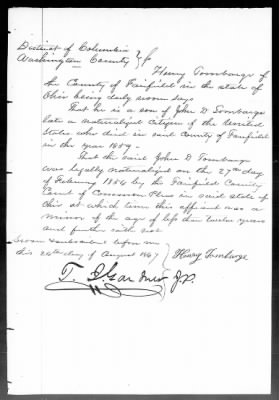 District of Columbia
Washington County } ss
Henry Tombarge of
the County of Fairfield in the state of
Ohio being duly sworn says
That he is a son of John D Tombarge
late a naturalized Citizen of the United
States who died in said County of Fairfield
in the year 1859 -
That the said John D Tombarge
was legally naturalized on the 27th day
of February 1854 by the Fairfield County
Court of Common Pleas in said state of
Ohio at which time this affiant was a
minor of the age of less than twelve years
and further saith not
Sworn and subscribed before me
this 26th day of August 1867 } Henry Tombarge
T. Gardner J.P.